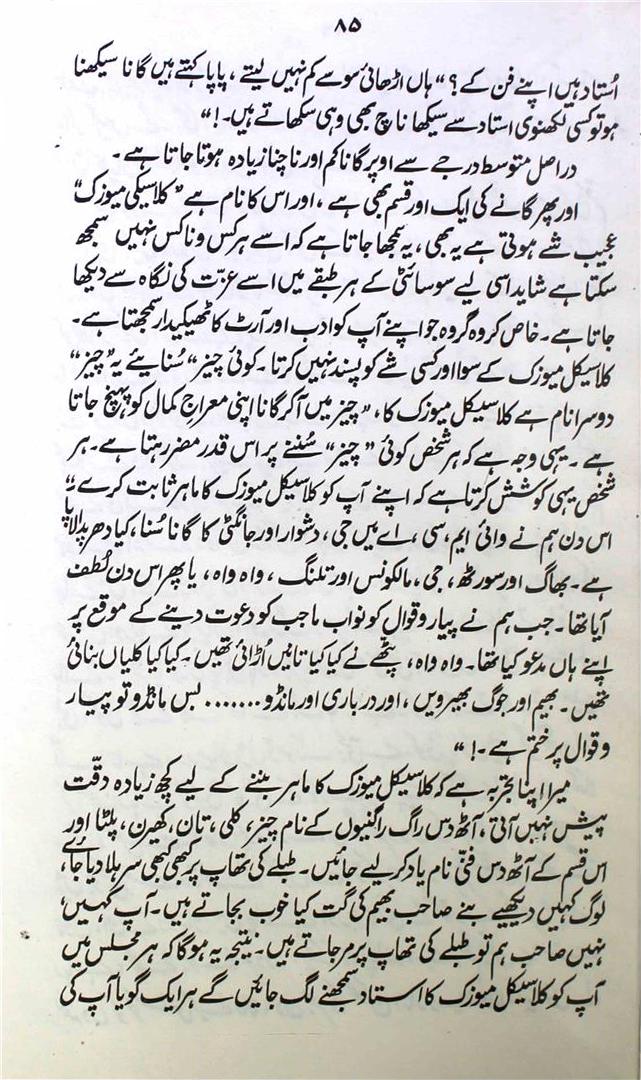 ۸۵
اُستاد ہیں اپنے فن کے؟“ ہاں اڑھائی سو سے کم نہیں لیتے، پاپا کہتے ہیں گانا سیکھنا
ہو تو کسی لکھنوی استاد سے سیکھا ناچ بھی وہی سکھاتے ہیں۔!“
دراصل متوسط درجے سے اوپر گانا کم اور ناچنا زیادہ ہوتا جاتا ہے۔
اور پھر گانے کی ایک اور قسم بھی ہے، اور اس کا نام ہے ”کلاسیکی میوزک“
عجیب شے ہوتی ہے یہ بھی، یہ سمجھا جاتا ہے کہ اسے ہر کس و ناکس نہیں سمجھ
سکتا ہے شاید اسی لیے سوسائٹی کے ہر طبقے میں اسے عزّت کی نگاہ سے دیکھا
جاتا ہے۔ خاص کر وہ گروہ جو اپنے آپ کو ادب اور آرٹ کا ٹھیکیدار سمجھتا ہے۔
کلاسیکل میوزک کے سوا اور کسی شے کو پسند نہیں کرتا۔ کوئی چیز“ سُنایئے یہ ”چیز“
دوسرا نام ہے کلاسیکل میوزک کا، ”چیز میں آ کر گانا اپنی معراجِ کمال کو پہنچ جاتا
ہے۔ یہی وجہ ہے کہ ہر شخص کوئی ”چیز“ سُننے پر اس قدر مضر رہتا ہے۔ ہر
شخص یہی کوشش کرتا ہے کہ اپنے آپ کو کلاسیکل میوزک کا ماہر ثابت کرے ؛“
اس دن ہم نے وائی ایم، سی، اے میں جی، دشوار اور جانگٹی کا گانا سُنا، کیا دھرپد الاپا
ہے۔ بھاگ اور سورٹھ، جی، مالکونس اور تلنگ، واہ واہ، یا پھر اس دن لُطف
آیا تھا۔ جب ہم نے پیارو قوال کو نواب ماجب کو دعوت دینے کے موقع پر
اپنے ہاں مدعو کیا تھا۔ واہ واہ، پٹھے نے کیا کیا تانیں اُڑائی تھیں۔ کیا کیا کلیاں بنائی
تھیں۔ بھیم اور جوگ بھیرویں، اور درباری اور مانڈو....... بس مانڈو تو پیار
و قوال پر ختم ہے۔!“
میرا اپنا تجربہ ہے کہ کلاسیکل میوزک کا ماہر بننے کے لیے کچھ زیادہ دقّت
پیش نہیں آتی، آٹھ دس راگ راگنیوں کے نام چیز، کلی، تان، کھرن، پلٹا اور
اس قسم کے آٹھ دس فنّی نام یاد کر لیے جائیں۔ طبلے کی تھاپ پر کبھی کبھی سر ہلا دیا جائے،
لوگ کہیں دیکھیے بنے صاحب بھیم کی گت کیا خوب بجاتے ہیں۔ آپ کہیں،
نہیں صاحب ہم تو طبلے کی تھاپ پر مر جاتے ہیں۔ نتیجہ یہ ہوگا کہ ہر مجلس میں
آپ کو کلاسیکل میوزک کا استاد سمجھنے لگ جائیں گے ہر ایک گویا آپ کی